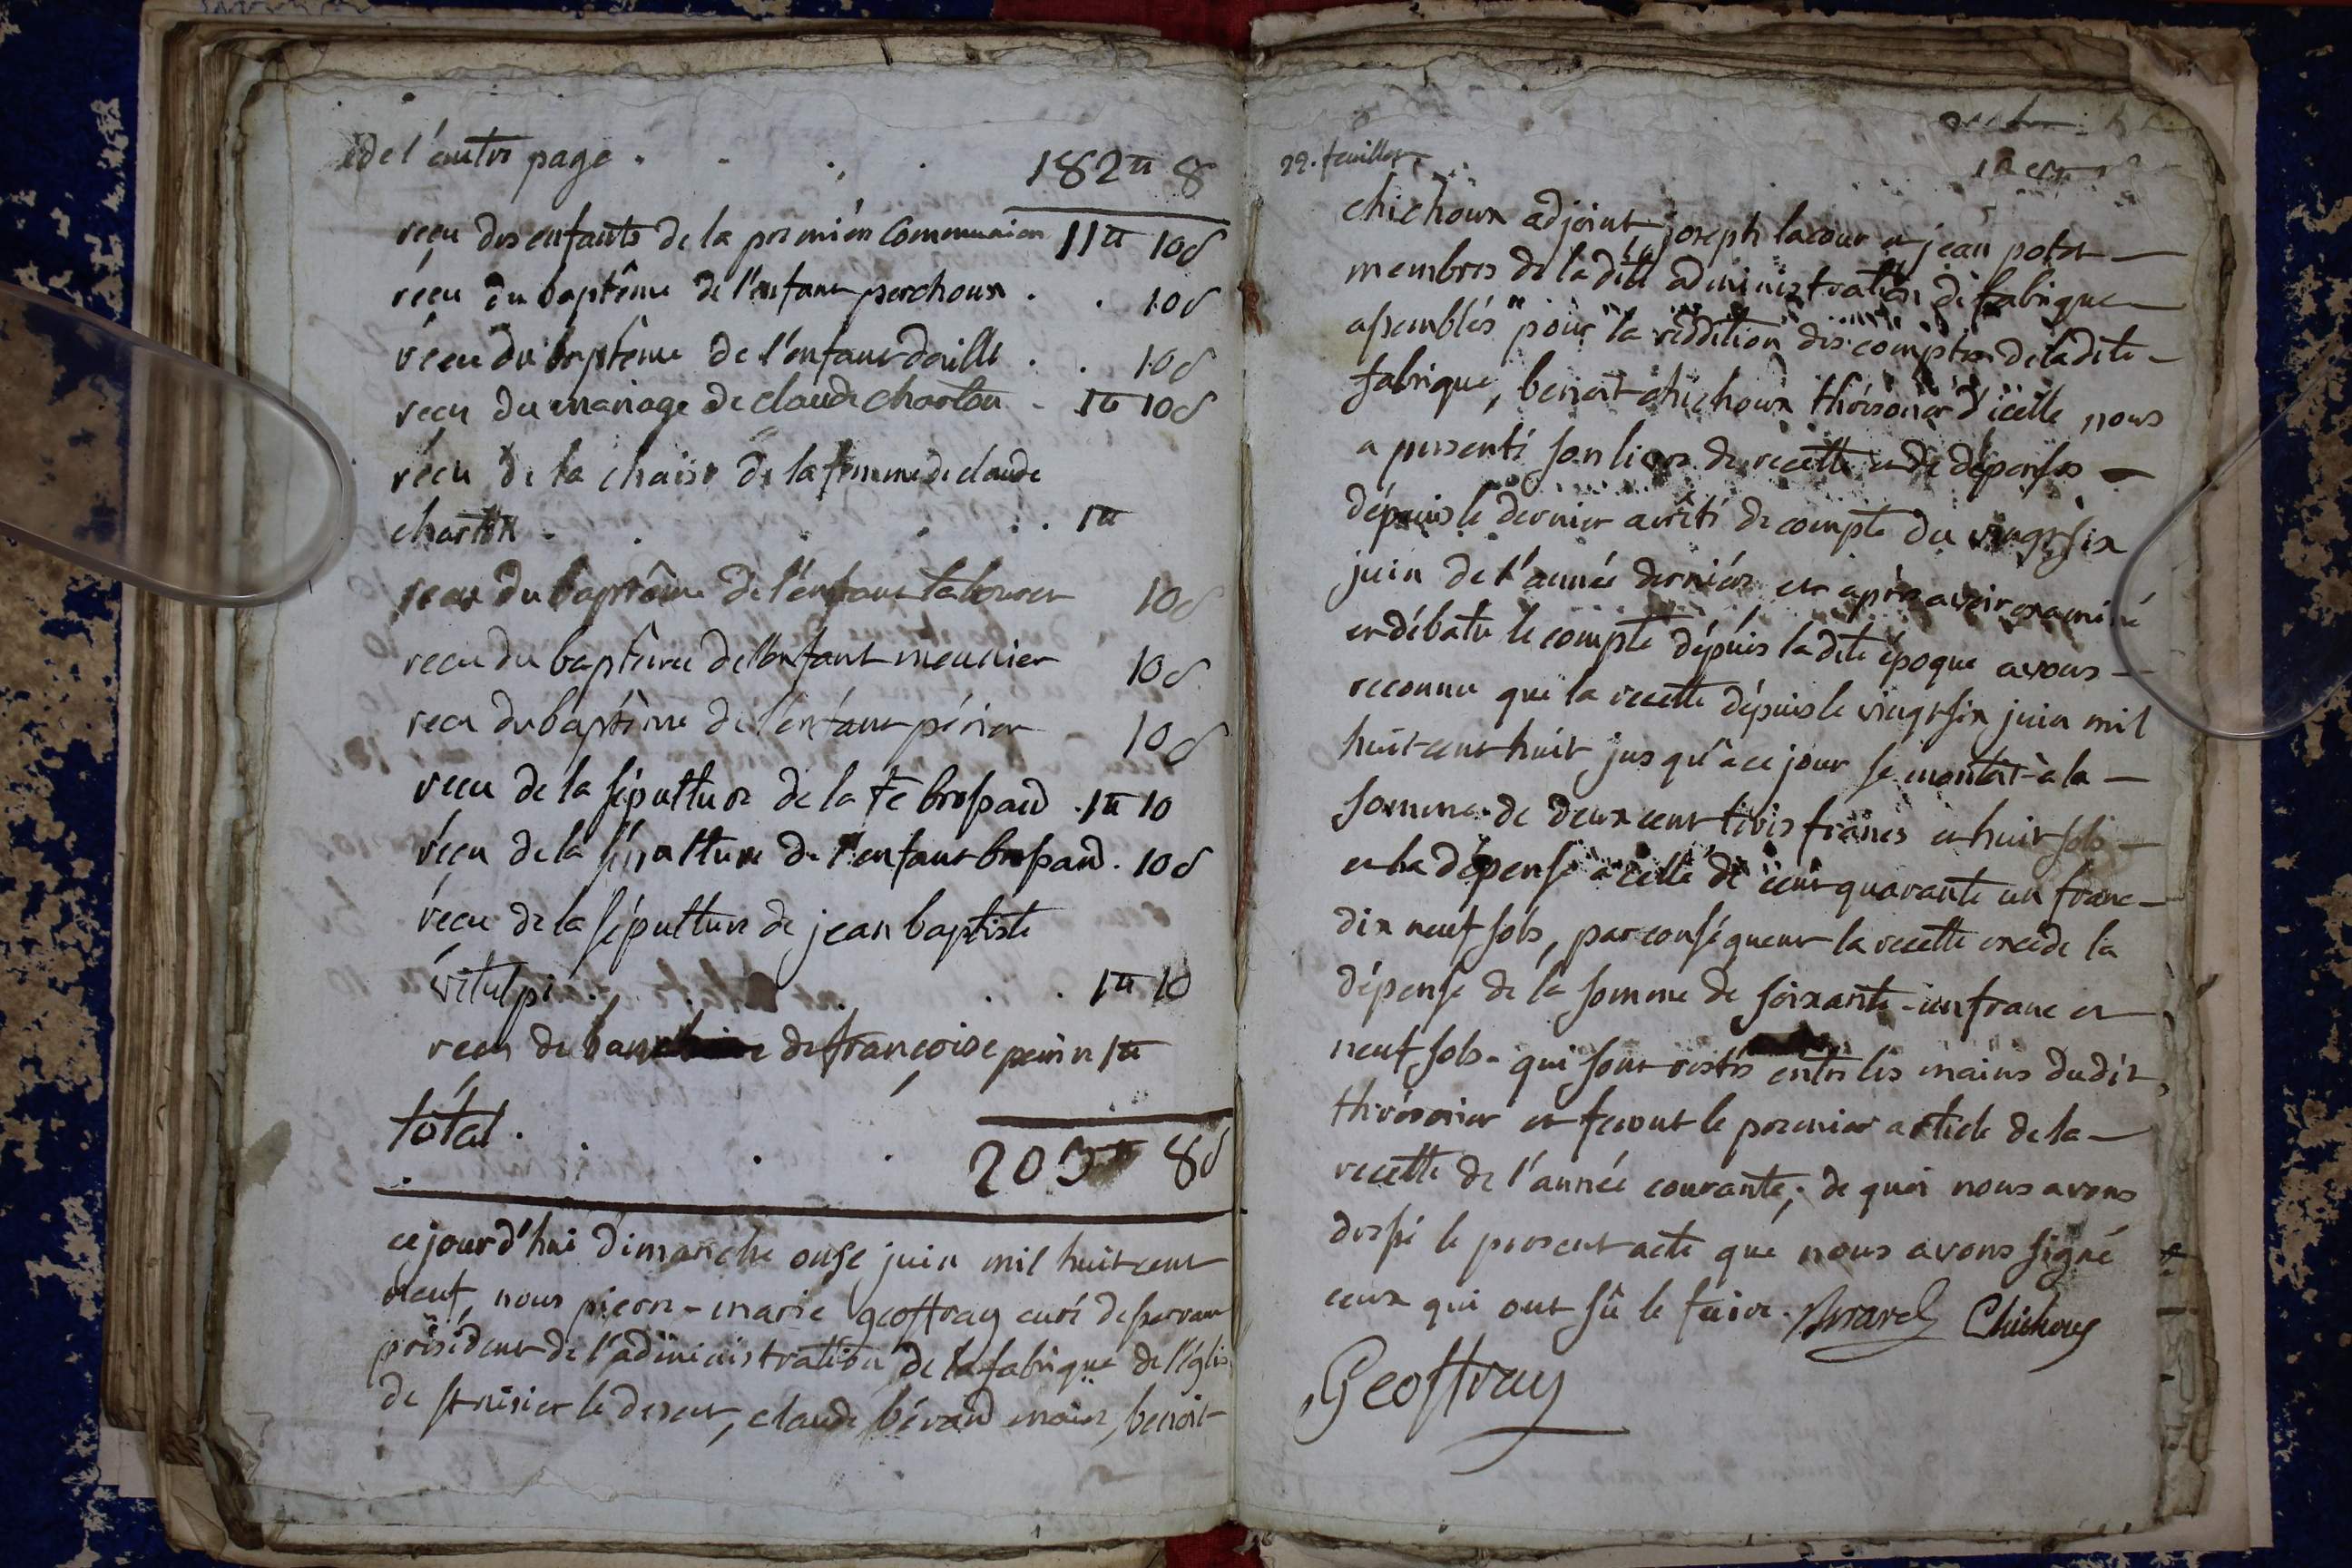 de l'autre page . . . . 182tt 8
reçu des enfants de la premièr Communion 11tt 10s
reçu du baptême de l'enfant perchoux . . 10s
réçu du baptême de l'enfant daillé . . 10s
reçu du mariage de claude charton - 1tt 10s
réçu de la chaise de la femme de claude
charton - . . . . 1tt
reçu du baptême de l'enfant labouret 10s
recu du baptême de l'enfant meunier 10s
recu du baptême de l'enfant périer 10s
recu de la sépulture de la fe brossard . 1tt 10
réçu de la sépulture de l'enfant brossard . 10s
réçu de la sépulture de jean baptiste
vitulpi . . . . . 1tt 10
recu du banc de françoise perrin 1tt
total . . . . 203tt 8s
ce jourd'hui dimanche onse juin mil huit cent
neuf, nous pierre-marie geoffray curé desservant
président de l'administration de la fabrique de l'église
de st nisier le desert, claude bérard maire, benoit
29. feuillet
chichoux adjoint, joseph lacour et jean potet
membres de la dite administration de fabrique
assemblés pour la réddition des comptes de la dite
fabrique, benoit chichoux thrésorier d'icelle nous
a presenté son livre de recette et de dépenses
dépuis le dernier arrêté de compte du vingt six
juin de l'année dernière et après avoir examiné
et débatu le compte dépuis la dite époque avons
reconnu que la recette dépuis le vingt six juin mil
huit cent huit jusqu'à ce jour se montoit à la
somme de deux cent trois francs et huit sols
et la dépense à celle de cent quarante un franc
dix neuf sols, par conséquent la recette excède la
dépense de la somme de soixante-un franc et
neuf sols - qui sont restés entre les mains dudit
thrésorier et feront le premier article de la
recette de l'année courante, de quoi nous avons
dressé le present acte que nous avons signé
ceux qui ont sû le faire. Berard Chichoux
Geoffray